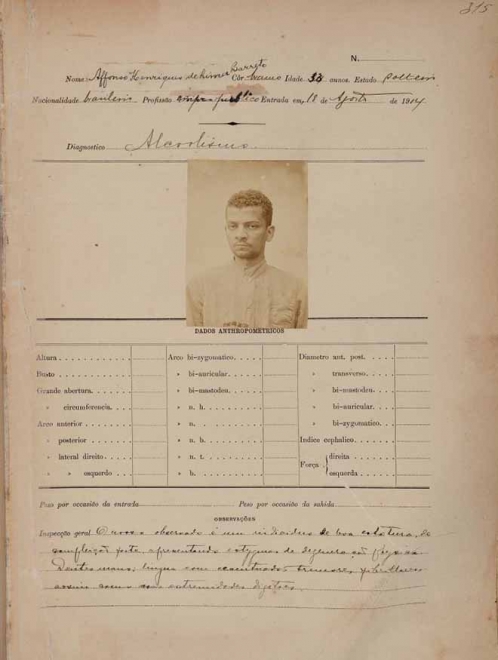 315
N.
Nome: Affonso Henriques de Lima Barreto Côr branco Idade 33 annos. Estado solteiro
Nacionalidade brasileiro Profissão empro publico Entrada em, 18 de Agosto de 1914
Diagnostico Alcoolismo
DADOS ANTHROPOMETRICOS
Altura Arco bi-zygomatico Diametro ant. post.
Busto » bi-auricular » transverso
Grande abertura » bi-mastoden » bi-mastoden
» circumferencia » n. h. » bi-auricular
Arco anterior » n. » bi-zygomatico
» posterior » n. h. Indice cephalico
» lateral direito » n. t. Força { direita
» » esquerdo » h. esquerda
Peso por occasião da entrada Peso por occasião da sahida
OBSERVAÇÕES
Inspecção geral O nosso observado é um individuo de boa estatura, de
compleição forte, apresentando estygmas de degeneração physica.
Dentes maus; lingua com accentuados tremores fibrillares
assim como nas extremidades digitaes.